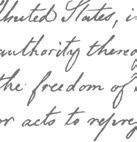 United States, i
authority thereo
the freedom of
or acts to repre